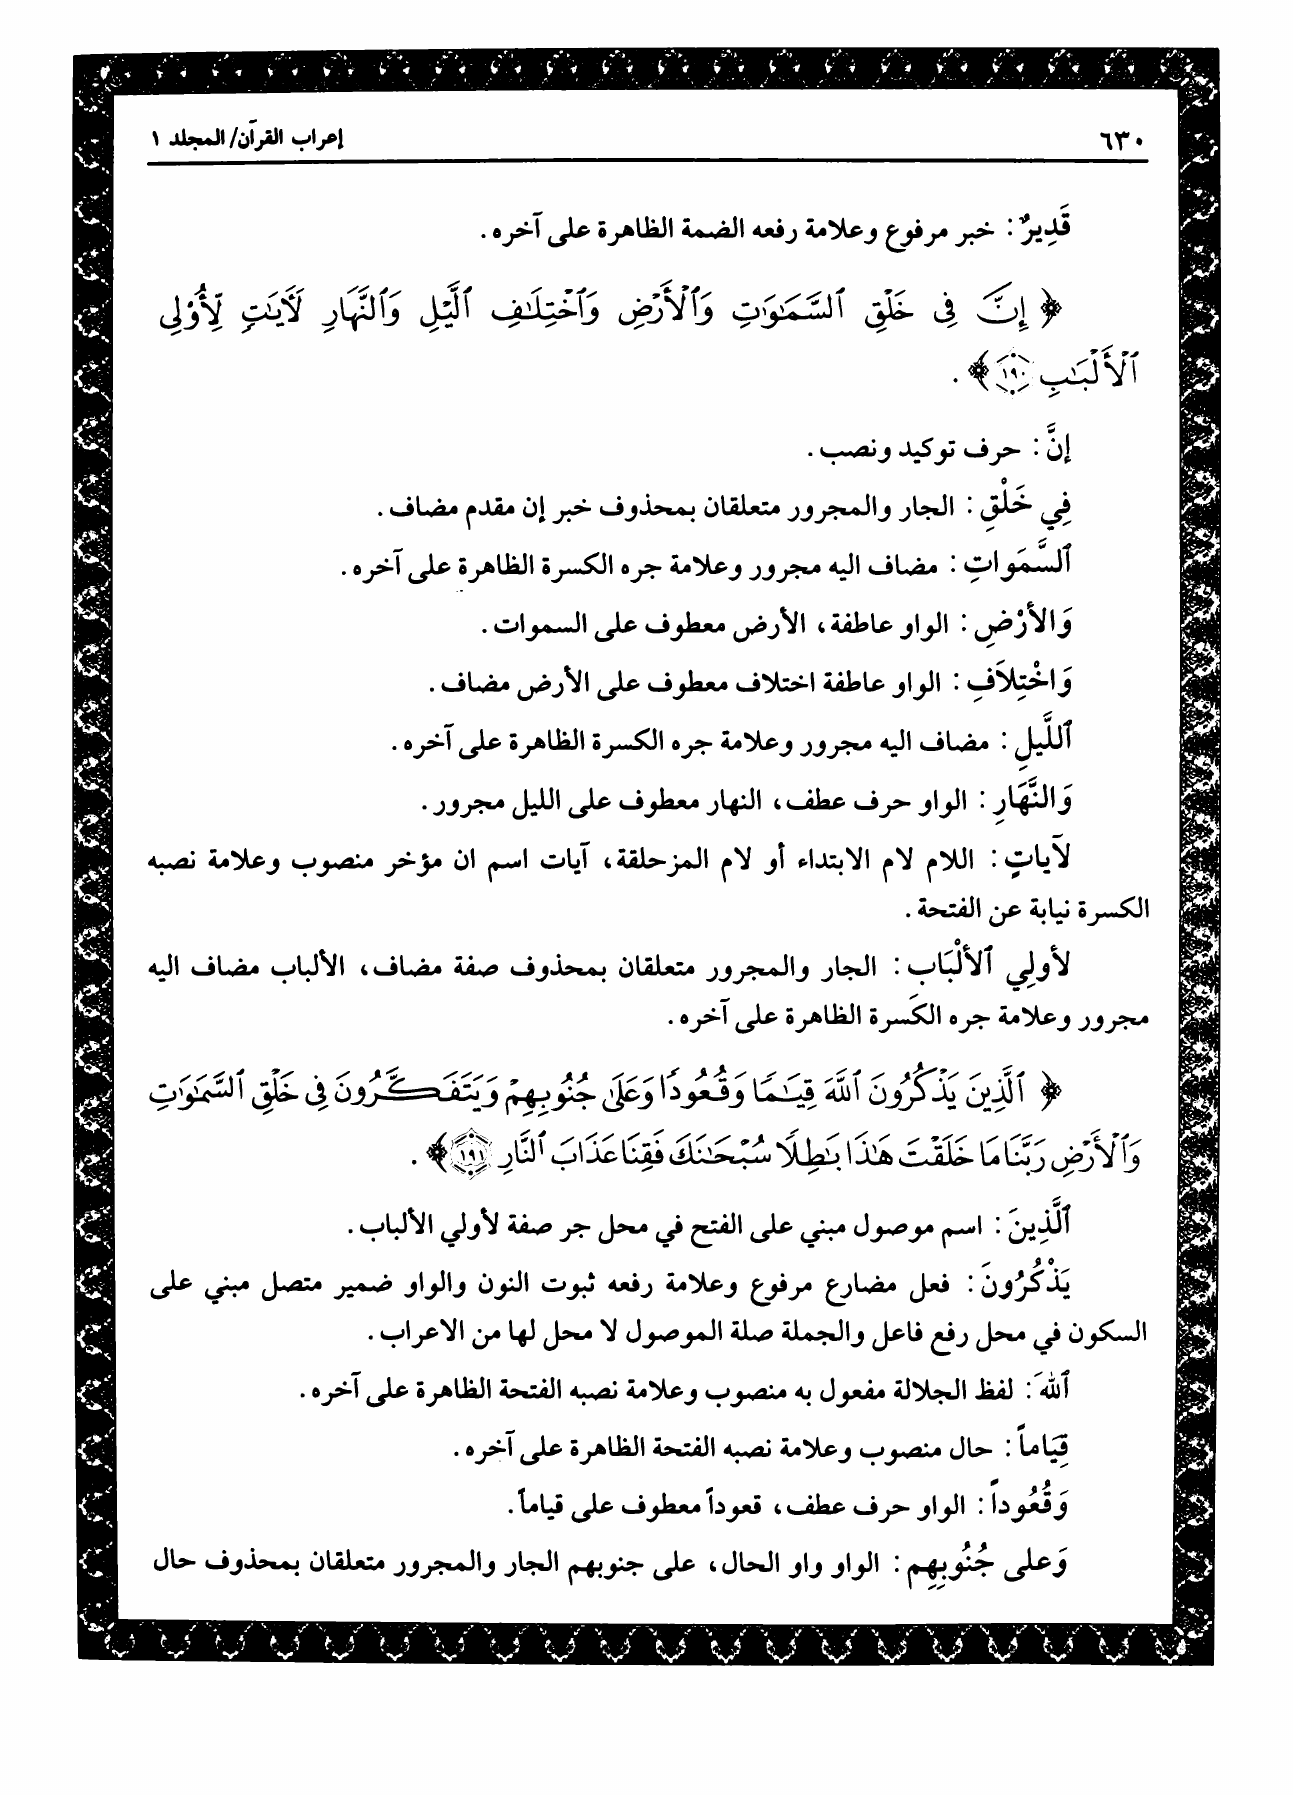 ٦٣٠
إعراب القرآن/ المجلد ١
قَدِيرٌ: خبر مرفوع وعلامة رفعه الضمة الظاهرة على آخره.
﴿ إِنَّ فِى خَلْقِ ٱلسَّمَٰوَٰتِ وَٱلْأَرْضِ وَٱخْتِلَٰفِ ٱلَّيْلِ وَٱلنَّهَارِ لَأٓيَٰتٍ لِّأُو۟لِى
ٱلْأَلْبَٰبِ ١٩٠ ﴾.
إنَّ: حرف توكيد ونصب.
فِي خَلْقِ: الجار والمجرور متعلقان بمحذوف خبر إن مقدم مضاف.
ٱلسَّمَوَاتِ: مضاف اليه مجرور وعلامة جره الكسرة الظاهرة على آخره.
وَالأرْضِ: الواو عاطفة، الأرض معطوف على السموات.
وَاخْتِلاَفِ: الواو عاطفة اختلاف معطوف على الأرض مضاف.
ٱللَّيلِ: مضاف اليه مجرور وعلامة جره الكسرة الظاهرة على آخره.
وَالنَّهَارِ: الواو حرف عطف، النهار معطوف على الليل مجرور.
لآياتٍ: اللام لام الابتداء أو لام المزحلقة، آيات اسم ان مؤخر منصوب وعلامة نصبه
الكسرة نيابة عن الفتحة.
لأولِي ٱلألْبَابِ: الجار والمجرور متعلقان بمحذوف صفة مضاف، الألباب مضاف اليه
مجرور وعلامة جره الكَسرة الظاهرة على آخره.
﴿ ٱلَّذِينَ يَذْكُرُونَ ٱللَّهَ قِيَٰمًا وَقُعُودًا وَعَلَىٰ جُنُوبِهِمْ وَيَتَفَكَّرُونَ فِى خَلْقِ ٱلسَّمَٰوَٰتِ
وَٱلْأَرْضِ رَبَّنَا مَا خَلَقْتَ هَٰذَا بَٰطِلًا سُبْحَٰنَكَ فَقِنَا عَذَابَ ٱلنَّارِ ١٩١ ﴾.
ٱلَّذِينَ: اسم موصول مبني على الفتح في محل جر صفة لأولي الألباب.
يَذْكُرُونَ: فعل مضارع مرفوع وعلامة رفعه ثبوت النون والواو ضمير متصل مبني على
السكون في محل رفع فاعل والجملة صلة الموصول لا محل لها من الاعراب.
ٱللهَ: لفظ الجلالة مفعول به منصوب وعلامة نصبه الفتحة الظاهرة على آخره.
قِيَاماً: حال منصوب وعلامة نصبه الفتحة الظاهرة على آخره.
وَقُعُوداً: الواو حرف عطف، قعوداً معطوف على قياماً.
وَعلى جُنُوبِهِم: الواو واو الحال، على جنوبهم الجار والمجرور متعلقان بمحذوف حال